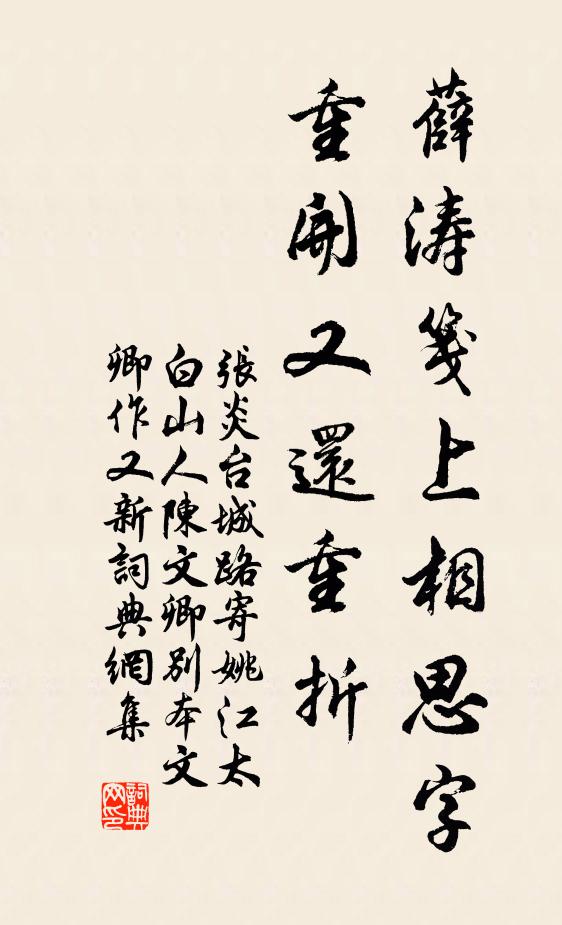 薛涛箋上相思字
重開又還重折
張炎台城路寄姚江太
白山人陳文卿别本文
卿作又新詞典網集
詞典
网印